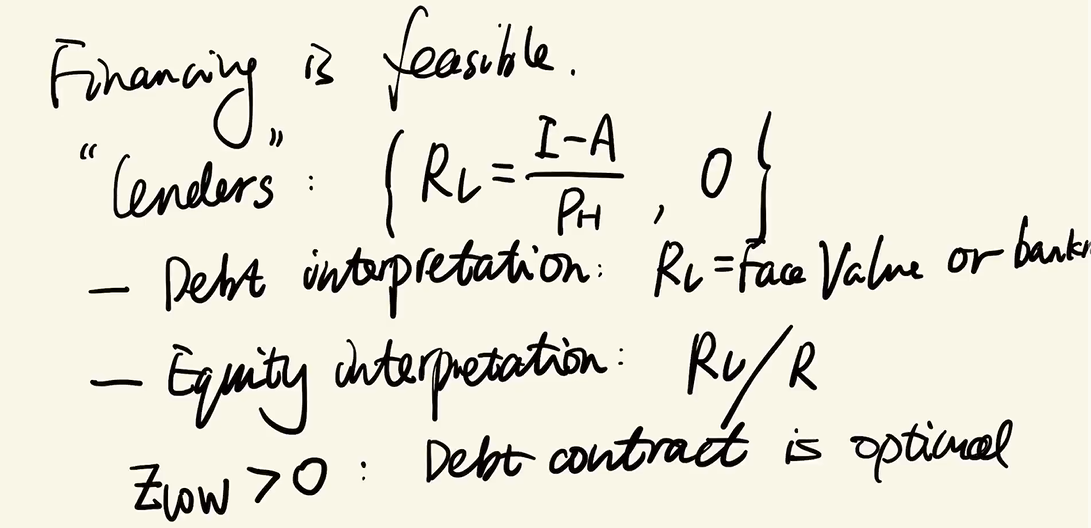 Financing is feasible.
"lenders": { R_L = \frac{I-A}{P_H}, 0 }
— Debt interpretation: R_L = Face Value or
— Equity interpretation: R_L/R
Z_low > 0: Debt contract is optimal